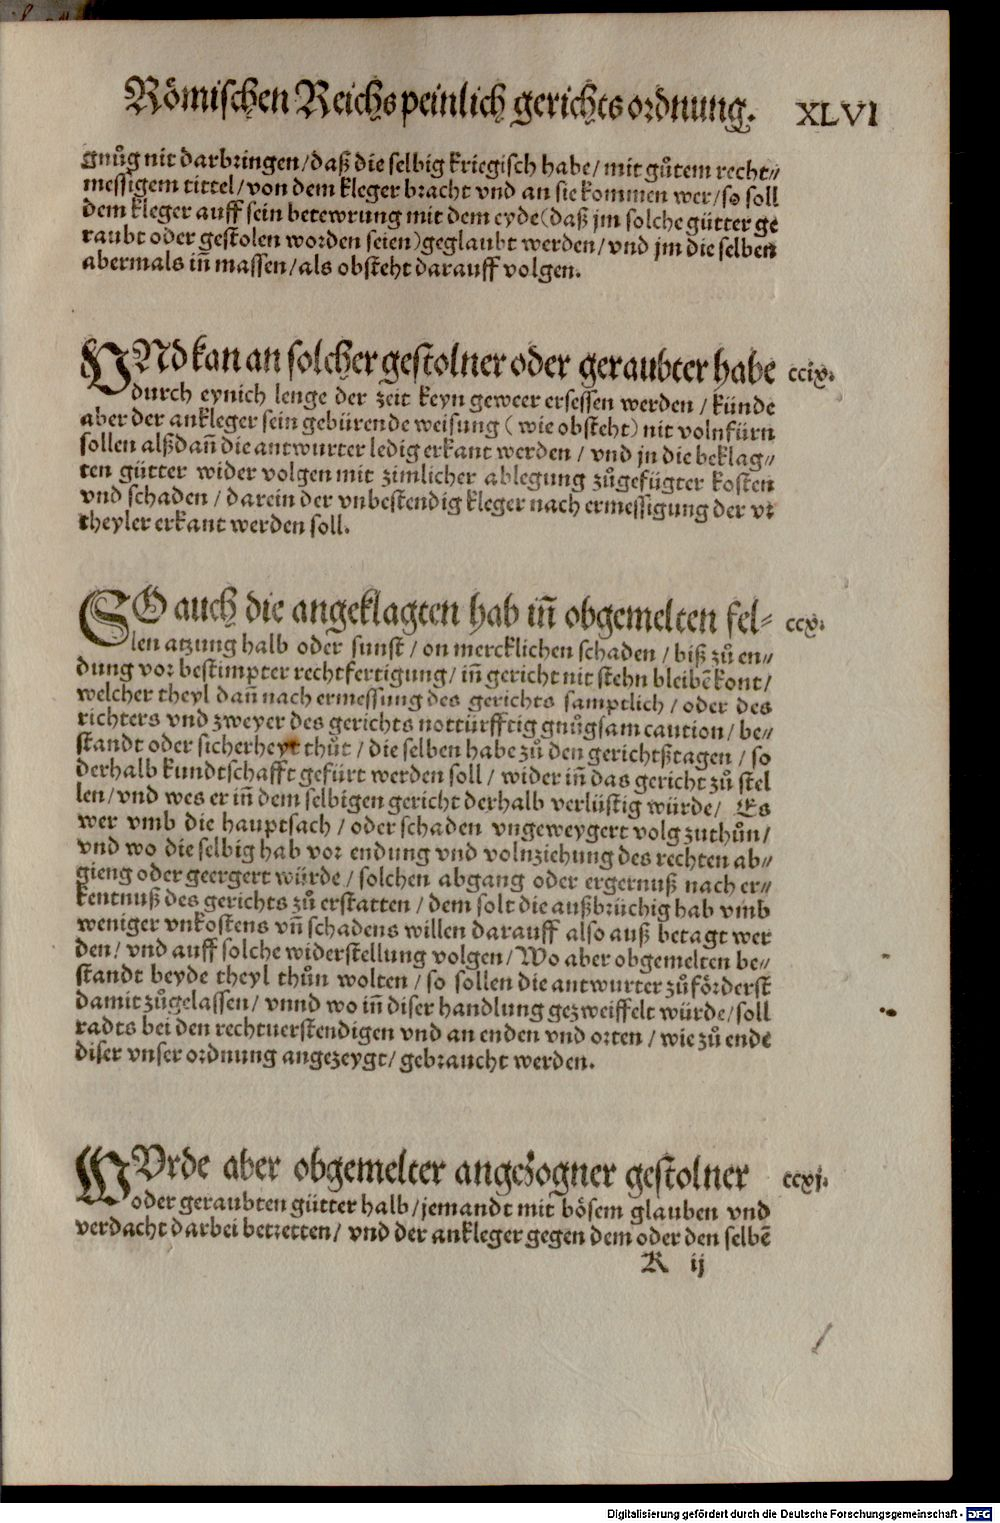 Römischen Reichs peinlich gerichts ordnung. XLVI
gnůg nit darbringen/daß die selbig kriegisch habe/ mit gůtem recht⸗
messigem tittel/von dem kleger bracht vnd an sie kommen wer/so soll
dem kleger auff sein betewrung mit dem eyde(daß jm solche gütter ge
raubt oder gestolen worden seien)geglaubt werden/vnd jm die selben
abermals iñ massen/als obsteht darauff volgen.
VNd kan an solcher gestolner oder geraubter habe ccix.
durch eynich lenge der zeit keyn geweer ersessen werden / künde
aber der ankleger sein gebürende weisung ( wie obsteht) nit volnfürn
sollen alßdañ die antwurter ledig erkant werden / vnd jn die beklag⸗
ten gütter wider volgen mit zimlicher ablegung zůgefügter kosten
vnd schaden / darein der vnbestendig kleger nach ermessigung der vr
theyler erkant werden soll.
SO auch die angeklagten hab iñ obgemelten fel⸗ ccx.
len atzung halb oder sunst / on mercklichen schaden / biß zů en⸗
dung vor bestimpter rechtfertigung/ iñ gericht nit stehn bleibē kont/
welcher theyl dañ nach ermessung des gerichts samptlich / oder des
richters vnd zweyer des gerichts nottürfftig gnůgsam caution / be⸗
standt oder sicherheyt thůt / die selben habe zů den gerichtßtagen / so
derhalb kundtschafft gefürt werden soll / wider iñ das gericht zů stel
len/vnd wes er iñ dem selbigen gericht derhalb verlüstig würde/ Es
wer vmb die hauptsach / oder schaden vngeweygert volg zuthůn/
vnd wo die selbig hab vor endung vnd volnziehung des rechten ab⸗
gieng oder geergert würde / solchen abgang oder ergernuß nach er⸗
kentnuß des gerichts zů erstatten / dem solt die außbrüchig hab vmb
weniger vnkostens vñ schadens willen darauff also auß betagt wer
den/ vnd auff solche widerstellung volgen/Wo aber obgemelten be⸗
standt beyde theyl thůn wolten / so sollen die antwurter zůförderst
damit zůgelassen/ vnnd wo iñ diser handlung gezweiffelt würde/soll
radts bei den rechtuerstendigen vnd an enden vnd orten / wie zů ende
diser vnser ordnung angezeygt/ gebraucht werden.
WVrde aber obgemelter angezogner gestolner ccxj.
oder geraubten gütter halb/jemandt mit bösem glauben vnd
verdacht darbei betretten/ vnd der ankleger gegen dem oder den selbē
K ij
Digitalisierung gefördert durch die Deutsche Forschungsgemeinschaft - DFG